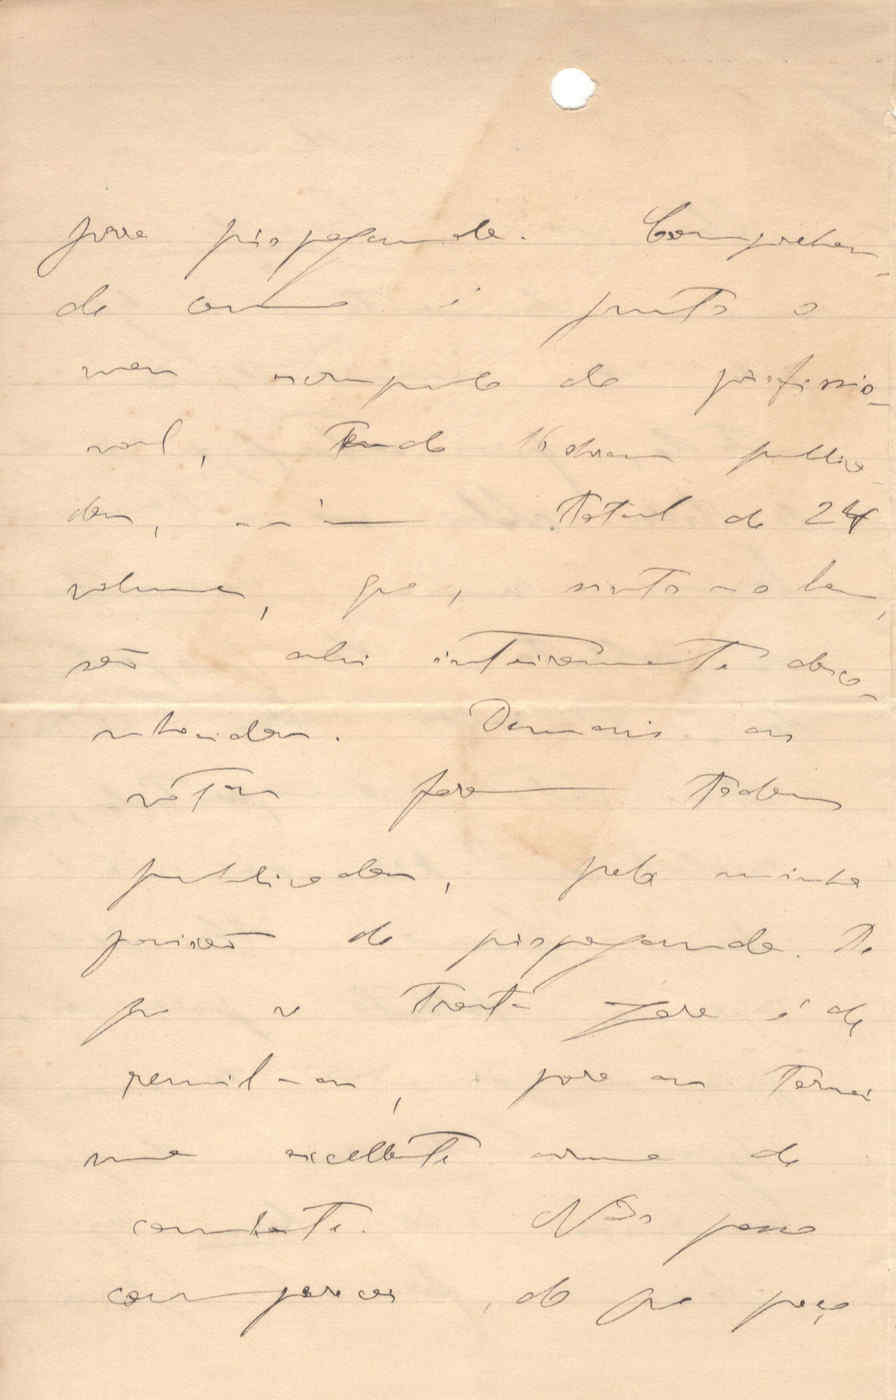 para propaganda. Comprehen-
de como é justo o
meu escrupulo de profissio-
nal, Tendo 16 obras publica-
das, um total de 24
volumes, que, sinto-o bem,
são ahi inteiramente desco-
nhecidas. Demais as
notas foram todas
publicadas, pela minha
posição de propaganda. De
que se trata agora é de
reunil-as, para as tornar
uma excellente arma de
combate. Não posso
comparecer, do que peço